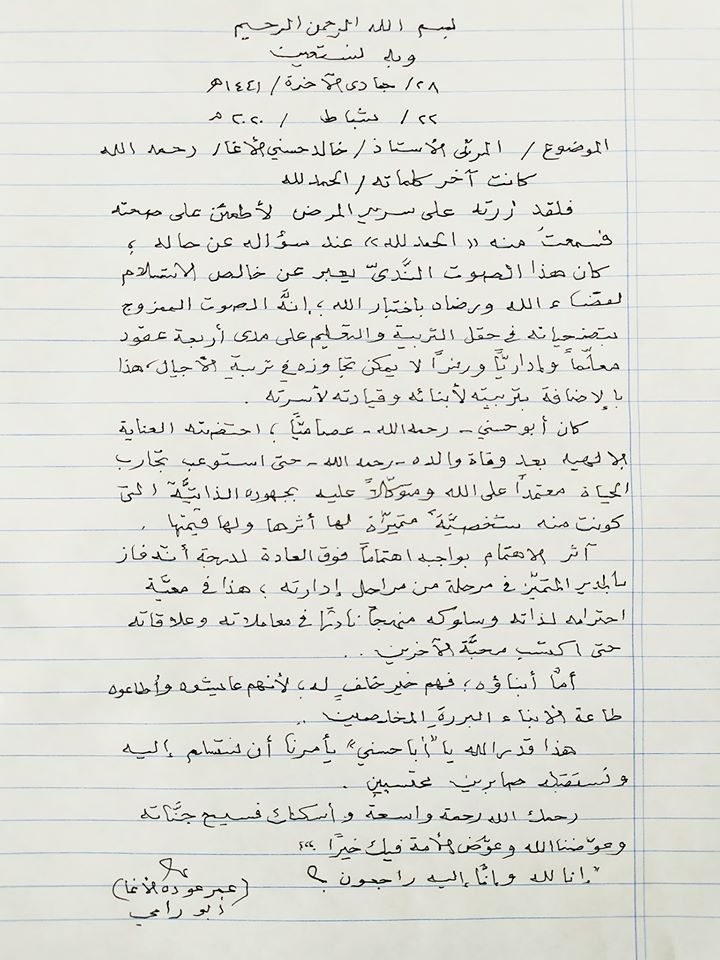 بسم الله الرحمن الرحيم
وبه نستعين
٢٨/ جمادى الآخرة / ١٤٤١هـ
٢٢/ شباط / ٢٠٢٠م
الموضوع / المربّي الأستاذ / خالد حسني الأغا / رحمه الله
كانت آخر كلماته / الحمد لله
فلقد زرته على سرير المرض لأطمئن على صحته
فسمعتُ منه «الحمد لله» عند سؤاله عن حاله ؛
كان هذا الصوت النَّديّ يعبر عن خالص الاستسلام
لقضاء الله ورضاه باختبار الله ؛ إنَّه الصوت الممزوج
بتضحياته في حقل التربية والتعليم على مدى أربعة عقود
معلّماً وإداريّاً ورمزاً لا يمكن تجاوزه في تربية الأجيال، هذا
بالإضافة بتربيته لأبنائه وقيادته لأسرته .
كان أبو حسني - رحمه الله - عصاميّاً ؛ احتضنته العناية
الإلهيه بعد وفاة والده - رحمه الله - حتى استوعب تجارب
الحياة معتمداً على الله ومتوكّلاً عليه بجهوده الذاتيَّة التي
كونت منه شخصيَّة متميزّة لها أثرها ولها قيمتها .
آثر الاهتمام بواجبه اهتماماً فوق العادة لدرجة أنه فاز
بالمدير المتميّز في مرحلة من مراحل إدارته ؛ هذا في معيَّة
احترامه لذاته وسلوكه منهجاً نادرًا في معاملاته وعلاقاته
حتى اكتسب محبَّة الآخرين ..
أمّا أبناؤه ؛ فهم خير خلفٍ له، لأنهم عايشوه وأطاعوه
طاعة الأبناء البررة المخلصين ..
هذا قدر الله يا "أبا حسني" يأمرنا أن نستسلم إليه
ونستقبله صابرين محتسبين .
رحمك الله رحمة واسعة وأسكنك فسيح جنَّاته
وعوّضنا الله وعوّض الأمة فيك خيرًا ،،،
"إنا لله وإنّا إليه راجعون"
(عمر عوده الأغا)
أبو رامي